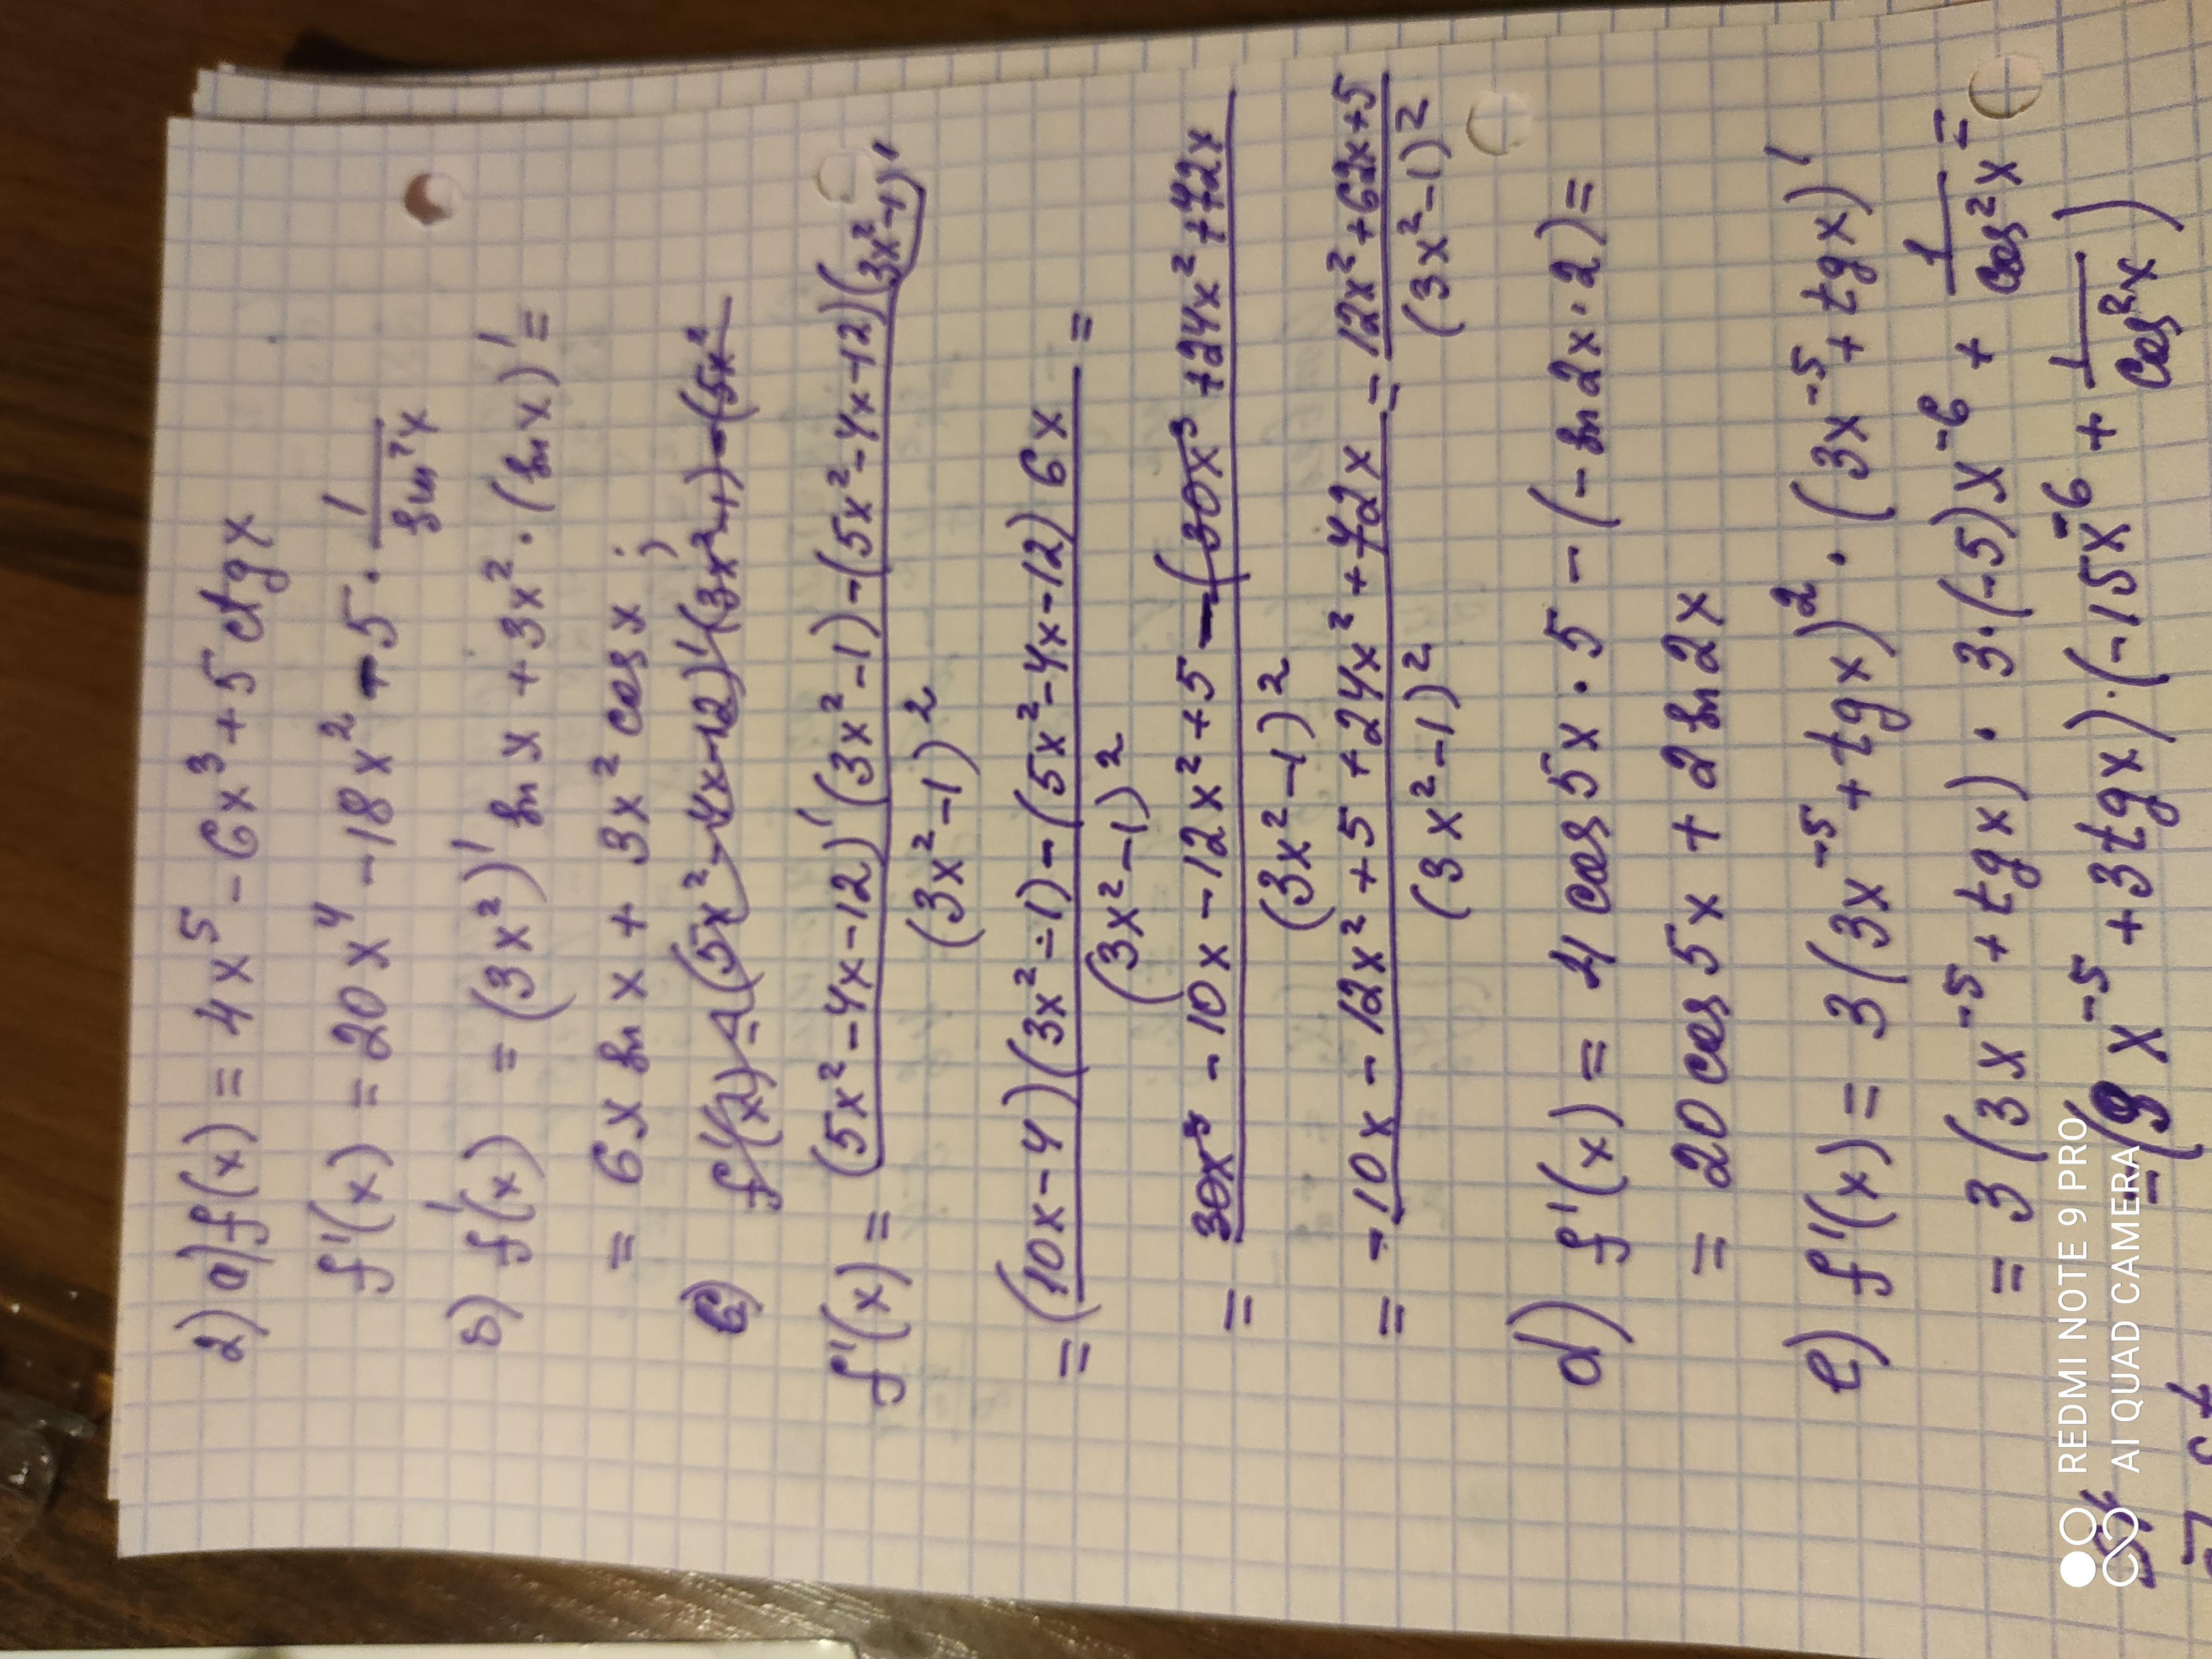 2) a) f(x) = 4x⁵ - 6x³ + 5 ctg x
f'(x) = 20x⁴ - 18x² - 5 · 1/sin²x
b) f'(x) = (3x²)' sin x + 3x² · (sin x)' =
= 6x sin x + 3x² cos x ;
c) f'(x) = (5x² - 4x - 12)' (3x² - 1) - (5x²
f'(x) = (5x² - 4x - 12)' (3x² - 1) - (5x² - 4x - 12)(3x² - 1)' / (3x² - 1)²
= (10x - 4)(3x² - 1) - (5x² - 4x - 12) 6x / (3x² - 1)² =
= 30x³ - 10x - 12x² + 5 - (30x³ + 24x² + 72x / (3x² - 1)²
= -10x - 12x² + 5 + 24x² + 72x / (3x² - 1)² = 12x² + 62x + 5 / (3x² - 1)²
d) f'(x) = 4 cos 5x · 5 - (- sin 2x · 2) =
= 20 cos 5x + 2 sin 2x
e) f'(x) = 3(3x⁻⁵ + tg x)² · (3x⁻⁵ + tg x)'
= 3(3x⁻⁵ + tg x) · 3·(-5)x⁻⁶ + 1/cos²x =
= (9x⁻⁵ + 3tg x) · (-15x⁻⁶ + 1/cos²x)
REDMI NOTE 9 PRO
AI QUAD CAMERA